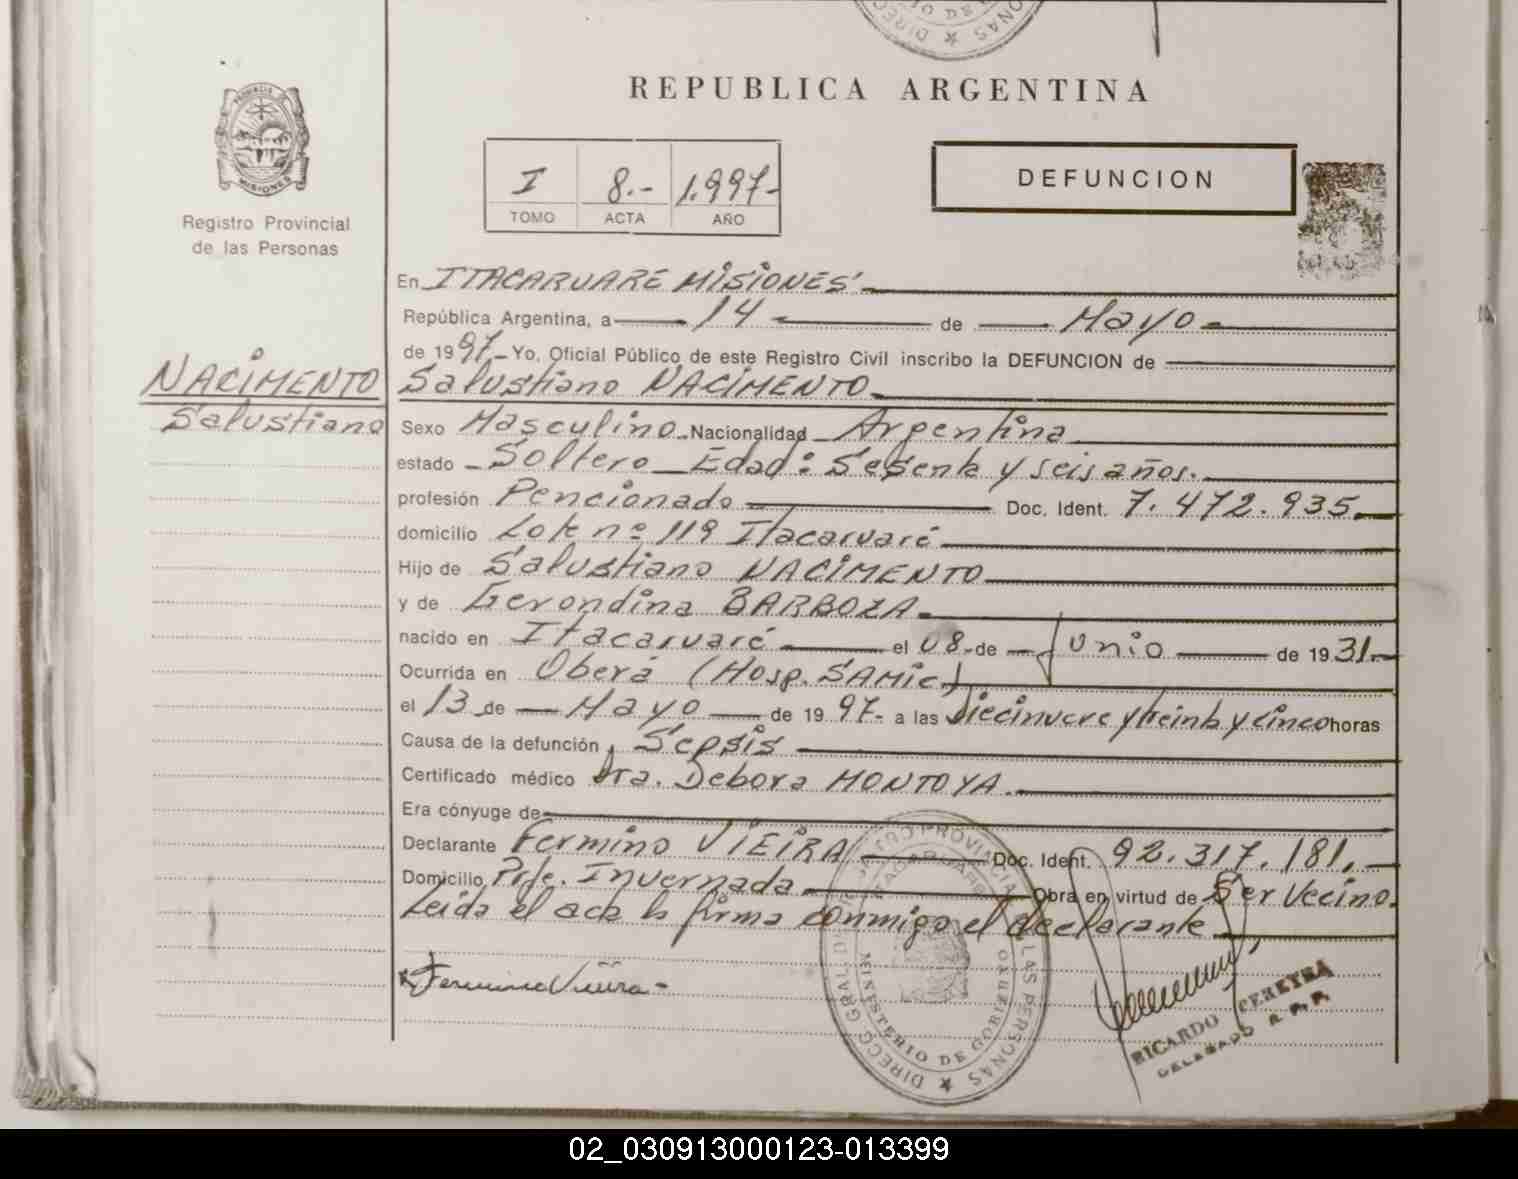 REPUBLICA ARGENTINA
PROVINCIA DE
MISIONES
Registro Provincial
de las Personas
I 8.- 1.997-
TOMO ACTA AÑO
DEFUNCION
En ITACARUARE MISIONES
República Argentina, a 14 de Mayo
de 1997.- Yo, Oficial Público de este Registro Civil inscribo la DEFUNCION de
NACIMENTO
Salustiano NACIMENTO
Salustiano
Sexo Masculino Nacionalidad Argentina
estado Soltero Edad: Sesenta y seis años.
profesión Pencionado Doc. Ident. 7.472.935.
domicilio Lote nº 119 Itacaruaré
Hijo de Salustiano NACIMENTO
y de Gerondina BARBOZA
nacido en Itacaruaré el 08 de Junio de 1931.
Ocurrida en Oberá (Hosp. SAMIC)
el 13 de Mayo de 1997- a las Diecinueve y treinta y cinco horas
Causa de la defunción Sepsis
Certificado médico Dra. Debora MONTOYA.
Era cónyuge de
Declarante Fermino VIEIRA Doc. Ident. 92.317.181.
Domicilio Pje. Invernada Obra en virtud de Ser Vecino.
Leida el acta la firma conmigo el declarante
Fermino Vieira
RICARDO PEREYRA
DELEGADO R.P.P.
MINISTERIO DE GOBIERNO
02_030913000123-013399